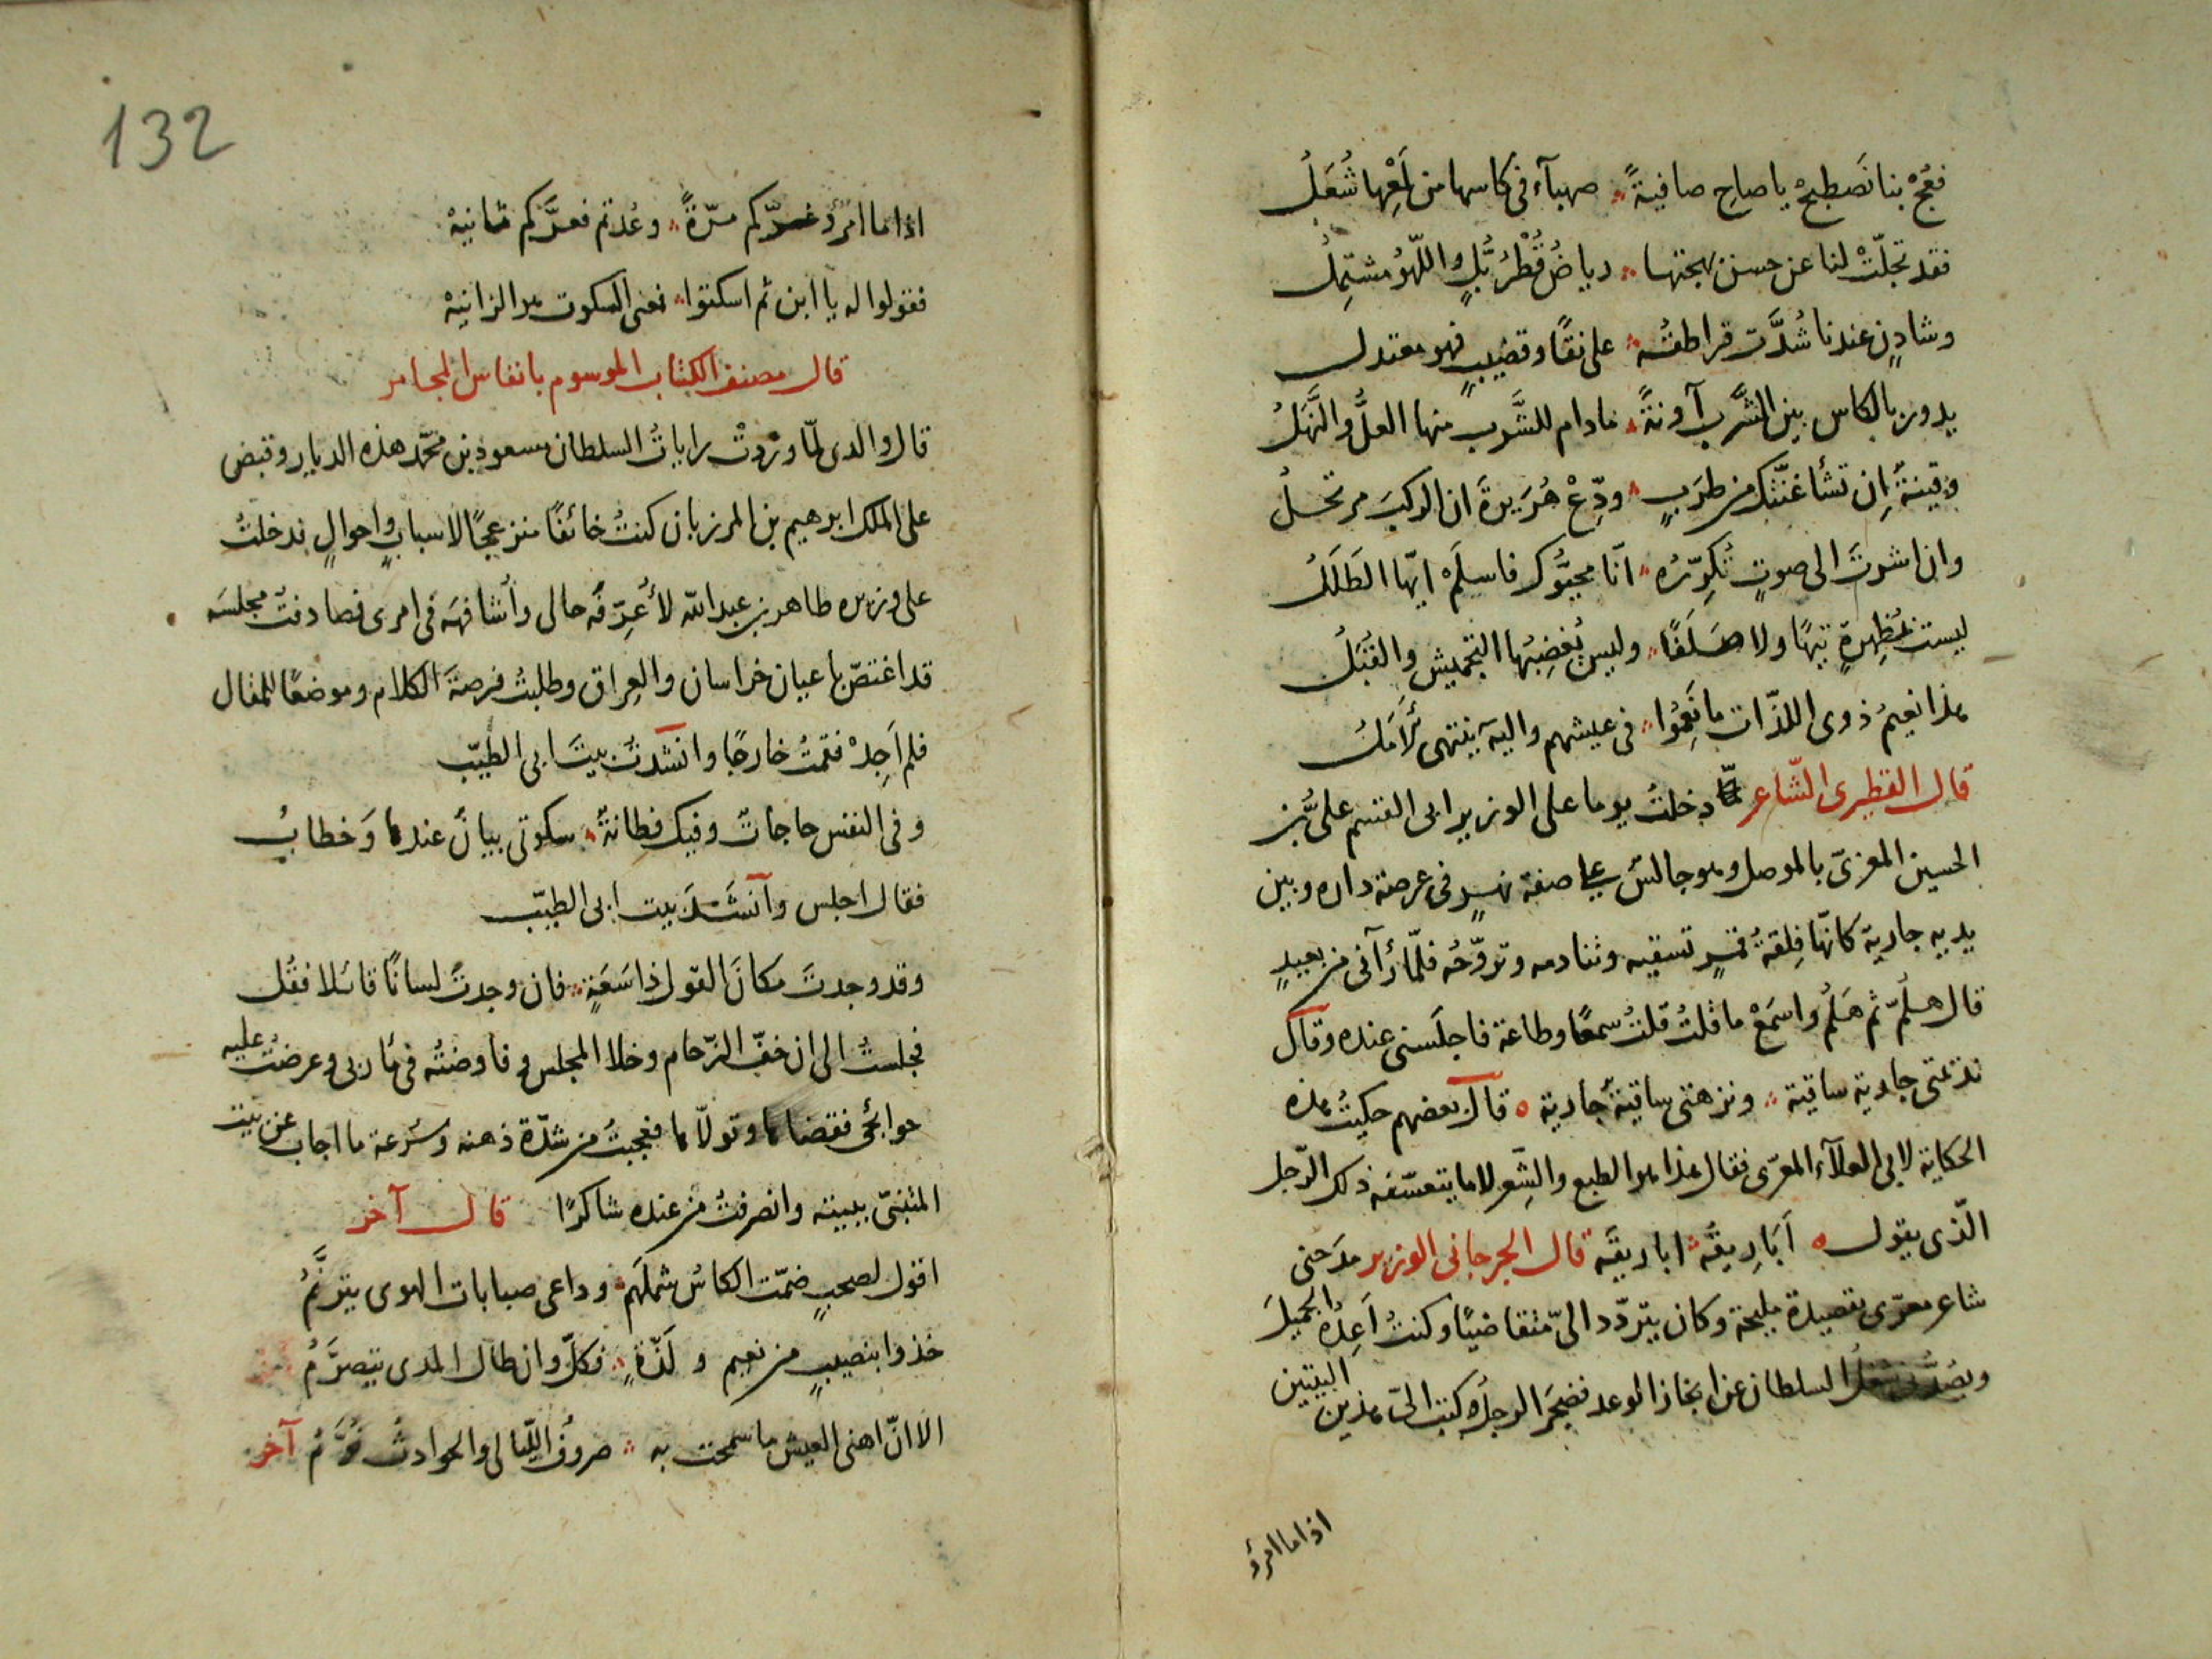 فعُجْ بنا نَصطبحْ يا صاحِ صافيةً ؞ صهبآء فى كاسها من لَمْعِها شُعَلُ
فقد تجلّتْ لنا عن حسن بهجتها ؞ رياضُ قُطْرُبُّلٍ واللّهوُ مشتمِل
وشادنٍ عندنا شُدَّت قراطقُه ؞ على نقًا وقضيبٍ فهو معتدل
يدور بالكاس بين الشَّرب آونةً ؞ مادام للشَّرب منها العلُّ والنَّهَلُ
وقينةٌ اِن تشأ غنّتك من طرَبٍ ؞ ودِّعْ هُرَيرةَ ان الركبَ مرتحلُ
وان اشرتَ الى صوتٍ تُكِرّرُه ؞ انّا محيّوُك فاسلَمْ ايّها الطَلَلُ
ليست بمُظهِرةٍ تيهًا ولا صَلَفًا ؞ وليس يُغضِبُها التجميش والقُبَلُ
هذا نعيمُ ذوى اللذّات ما نَعِمُوا ؞ فى عيشهم واليه ينتهى الأمَلُ
قال القطيرى الشّاعر دخلتُ يوما على الوزير ابى القسم علىّ بن
الحسين المغربىّ بالموصل وهو جالسٌ على صفة نهرٍ فى عرصة داره وبين
يديه جارية كانّها فِلقةُ قمرٍ تسقيه وتنادمه وتروّحُه فلمّا رآنى من بعيدٍ
قال هلُمّ ثم هَلُمّ واسمَعْ ما قلتُ قلتُ سمعًا وطاعة فاجلَسنى عنده وقال
نزعتنى جارية ساقية ؞ ونزهتنى ساقيةٌ جارية ه قال بعضهم حكيتُ هذه
الحكاية لابى العلآء المعرّى فقال هذا هو الطبع والشِّعر لا ما يتعسّفه ذلك الرّجل
الّذى يقول ه اَبَارِيقُه ؞ اباريقَه قال الجرجانى الوزير مدَحنى
شاعر معرّى بقصيدة مليحة وكان يتردّد الىّ متقاضيًا وكنتُ اَعِدُه الجميلَ
ويصُدُّنى شغلُ السلطان عن انجاز الوعد فضجَر الرجلُ وكتب الىّ هذين البيتين
اذا ما امرؤ
132
اذا ما امرؤ غرّكم مرّةً ؞ وعُدتم فغرَّكم ثانيهْ
فقولوا له يا ابن ثم اسكتوا ؞ فعىُ السكوت هو الزانيهْ
قال مصنف الكتاب الموسوم بانفاس المجامر
قال والدى لمّا وردتْ راياتُ السلطان مسعود بن محمّد هذه الديار وقبض
على الملك ابرهيم بن المرزبان كنتُ خائفًا منزعجًا لاسبابٍ واحوالٍ فدخلتُ
على وزيره طاهر بن عبد الله لأُعرّفَه حالى وأُشافهَه فى امرى فصادفتُ مجلسَه
قد اغتصّ باعيان خراسان والعِراق وطلبتُ فرصةَ الكلام وموضعًا للمقال
فلم اَجِدْ فقمتُ خارجًا وانشدتُ بيتَ ابى الطيّب
وفى النفس حاجاتٌ وفيك فطانةٌ ؞ سكوتى بيانٌ عندها وَخطابُ
فقال اجلس وانشَدَ بيت ابى الطيّب
وقد وجدتَ مكانَ القول ذا سَعَةٍ ؞ فان وجدتَ لسانًا قائلا فقُل
فجلستُ الى ان خفّ الزّحام وخلا المجلس وفاوضتُه فى مآربى وعرضتُ عليه
حوائجى فقضاها وتولّاها فعجبتُ من شدّة ذهنه وسُرعة ما اجاب عن بيت
المتنبّى ببيته وانصرفتُ من عنده شاكرًا قال آخر
اقول لصحبٍ ضمّت الكاسُ شملَهم ؞ وداعى صبابات الهوى يترنَّمُ
خذوا بنصيبٍ من نعيم و لَذّةٍ ؞ فكلّ وان طال المدى يتصرَّمُ
الا انّ اهنى العيش ما سمحت به ؞ صروفُ اللّيالى والحوادثُ نُوَّمُ آخر